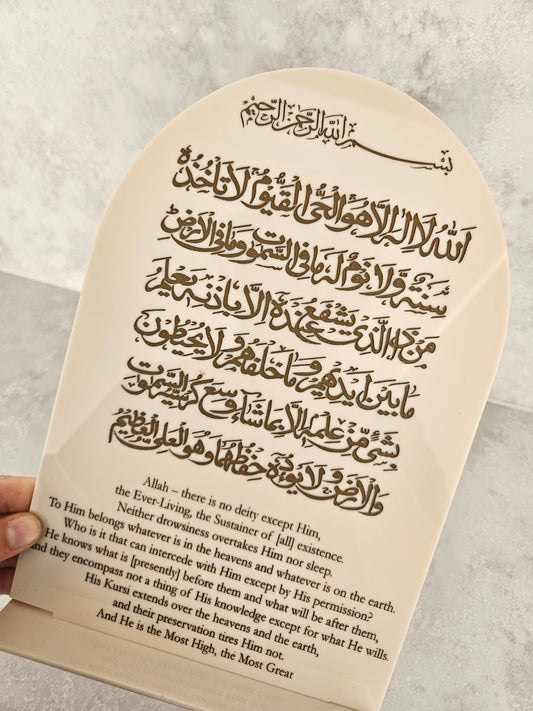 بسم الله الرحمن الرحيم
الله لا اله الا هو الحي القيوم لا تأخذه
سنة ولا نوم له ما في السموت وما في الارض
من ذا الذي يشفع عنده الا باذنه يعلم
ما بين ايديهم وما خلفهم ولا يحيطون
بشئ من علمه الا بما شاء وسع كرسيه السموت
والارض ولا يؤده حفظهما وهو العلي العظيم
Allah – there is no deity except Him,
the Ever-Living, the Sustainer of [all] existence.
Neither drowsiness overtakes Him nor sleep.
To Him belongs whatever is in the heavens and whatever is on the earth.
Who is it that can intercede with Him except by His permission?
He knows what is [presently] before them and what will be after them,
and they encompass not a thing of His knowledge except for what He wills.
His Kursi extends over the heavens and the earth,
and their preservation tires Him not.
And He is the Most High, the Most Great